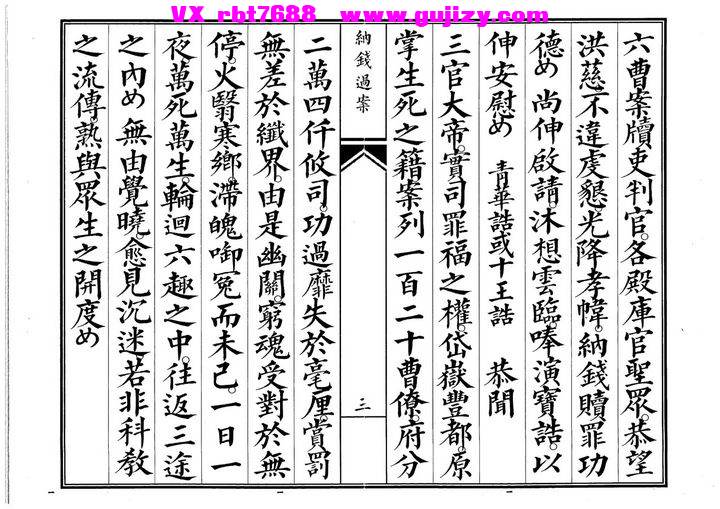 VX_rbt7688 www.gujizy.com
六曹案牘吏判官。各殿庫官聖眾。恭望
洪慈不違虔懇光降孝幃。納錢贖罪功
德め 尚伸啟請。沐想雲臨。唪演寶誥。以
伸安慰め 青華誥或十王誥 恭聞
三官大帝。實司罪福之權。岱嶽豐都。原
掌生死之籍案列一百二十曹僚。府分
納錢過案
三
二萬四仟攸司。功過靡失於毫厘。賞罰
無差於纖界。由是幽關。窮魂受對於無
停。火翳寒鄉。滯魄啣冤而未已。一日一
夜萬死萬生。輪迴六趣之中。往返三途
之內め 無由覺曉。愈見沉迷。若非科教
之流傳。熟與眾生之開度め